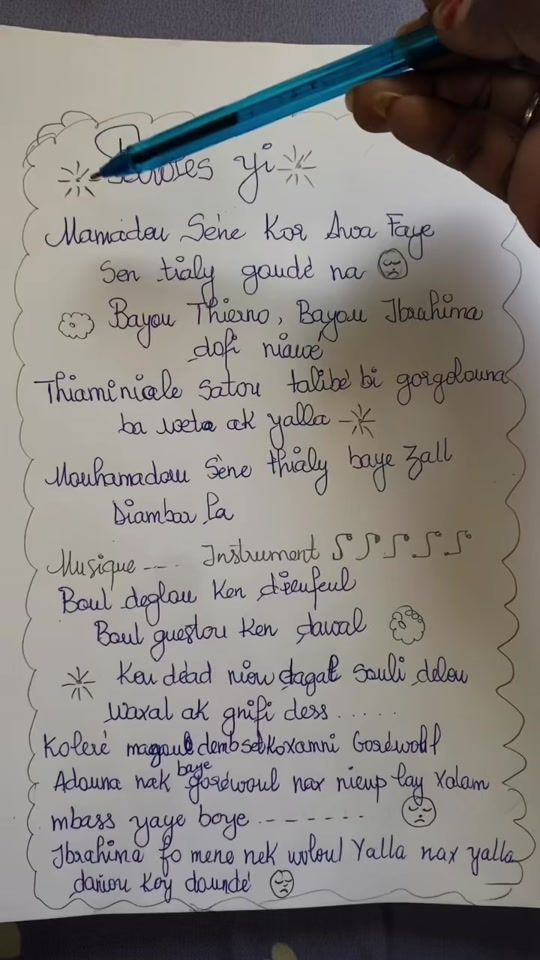 Paroles yi
Mamadou Sène Kor Awa Faye
Sen tialy goudé na
Bayou Thierno, Bayou Ibrahima
dofi niawé
Thiaminiale Satou talibé bi gorgolouna
ba weta ak yalla
Mouhamadou Sène thialy baye Zall
Diambar La
Musique ---- Instrument
Boul deglou Ken dieufeul
Boul guestou Ken dawal
Kou déad niow dagal souli delou
waxal ak gnifi dess .....
Koleré magoul demb set Koxamni Goréwoul
Adouna nak baye goréwoul nax nieup lay xalam
mbass yaye boye -------
Ibrahima fo mene nek woloul Yalla nax yalla
daniou koy daundé